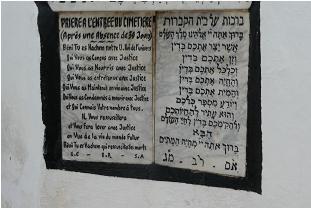 PRIERE A L'ENTREE DU CIMETIERE
(Après une Absence de 30 Jours)
Béni Tu es Hachem notre D. Roi de l'univers
Qui Vous as Conçus avec Justice
Qui Vous as Nourris avec Justice
Qui Vous as entretenus avec Justice
Qui Vous as Maintenus en vie avec Justice
Qui Vous as Condamnés à mourir avec Justice
et Qui Connais Votre nombre à Tous.
IL Vous ressuscitera
et Vous fera lever avec Justice
en Vue de la vie du monde futur
Béni Tu es Hachem qui ressuscites les morts
S.C - B.R. - S.A
ברכות על בית הקברות
ברוך אתה יי אלהינו מלך העולם
אשר יצר אתכם בדין
וזן אתכם בדין
וכלכל אתכם בדין
והחיה אתכם בדין
והמית אתכם בדין
ויודע מספר כלכם
והוא עתיד להחיותכם
ולהקימכם בדין לחיי העולם
הבא
ברוך אתה יי מחיה המתים